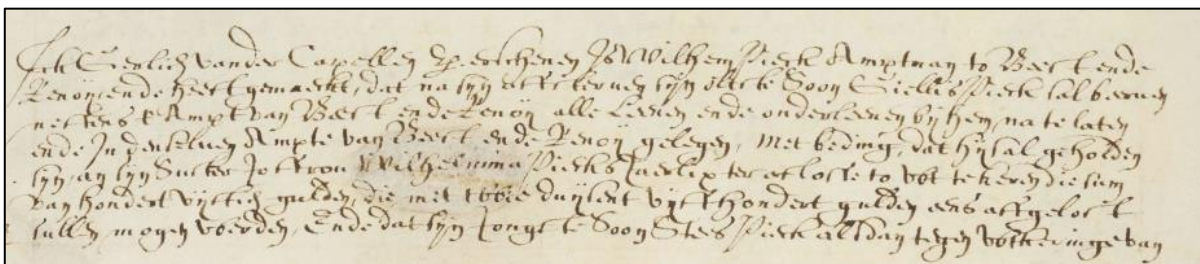 Ick Gerlich vander Capellen etc. erschenen Is Wilhem Pieck Amptman to Beest ende
Renoy, ende heeft gemaeckt, dat na syn affsteruen syn oltste Soon Gielliss Pieck sal beeruen
neffens t Ampt van Beest ende Renoy alle Leenen ende onderleenen by hem, na te laten
ende In denseluen Ampte van Beest ende Renoy gelegen, Met beding, dat hy sal geholden
syn, an syn Suster Joffrou Wilhelmina Piecks Jaerlix ter aflosse to vut te keren die sum
van hondert vyftich gulden, die met twie duysent vyffhondert gulden eens affgelost
sullen mogen worden, Ende dat syn Jongste Soon Stees Pieck alsdan tegen vutkeringe van